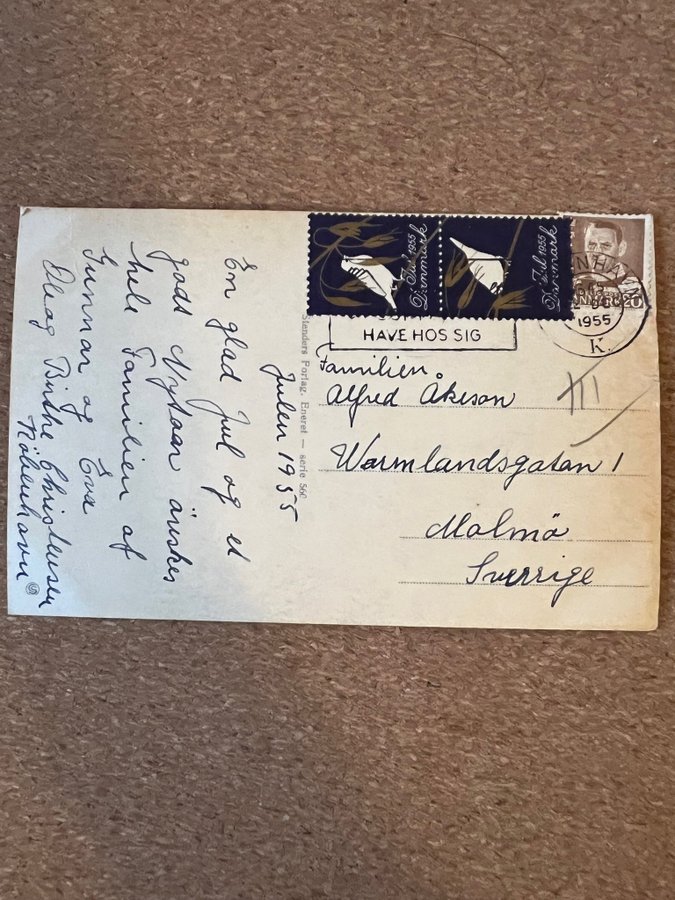 Julen 1955
En glad Jul og et
godt Nytaar ønskes
hele Familien af
Gunnar og Eva
og Birthe Christensen
København
Stenders Forlag. Eneret — serie 560
Jul 1955
Danmark
Jul 1955
Danmark
HAVE HOS SIG
1955
K.
20
Familien
Alfred Åkeson
Warmlandsgatan 1
Malmø
Sverrige